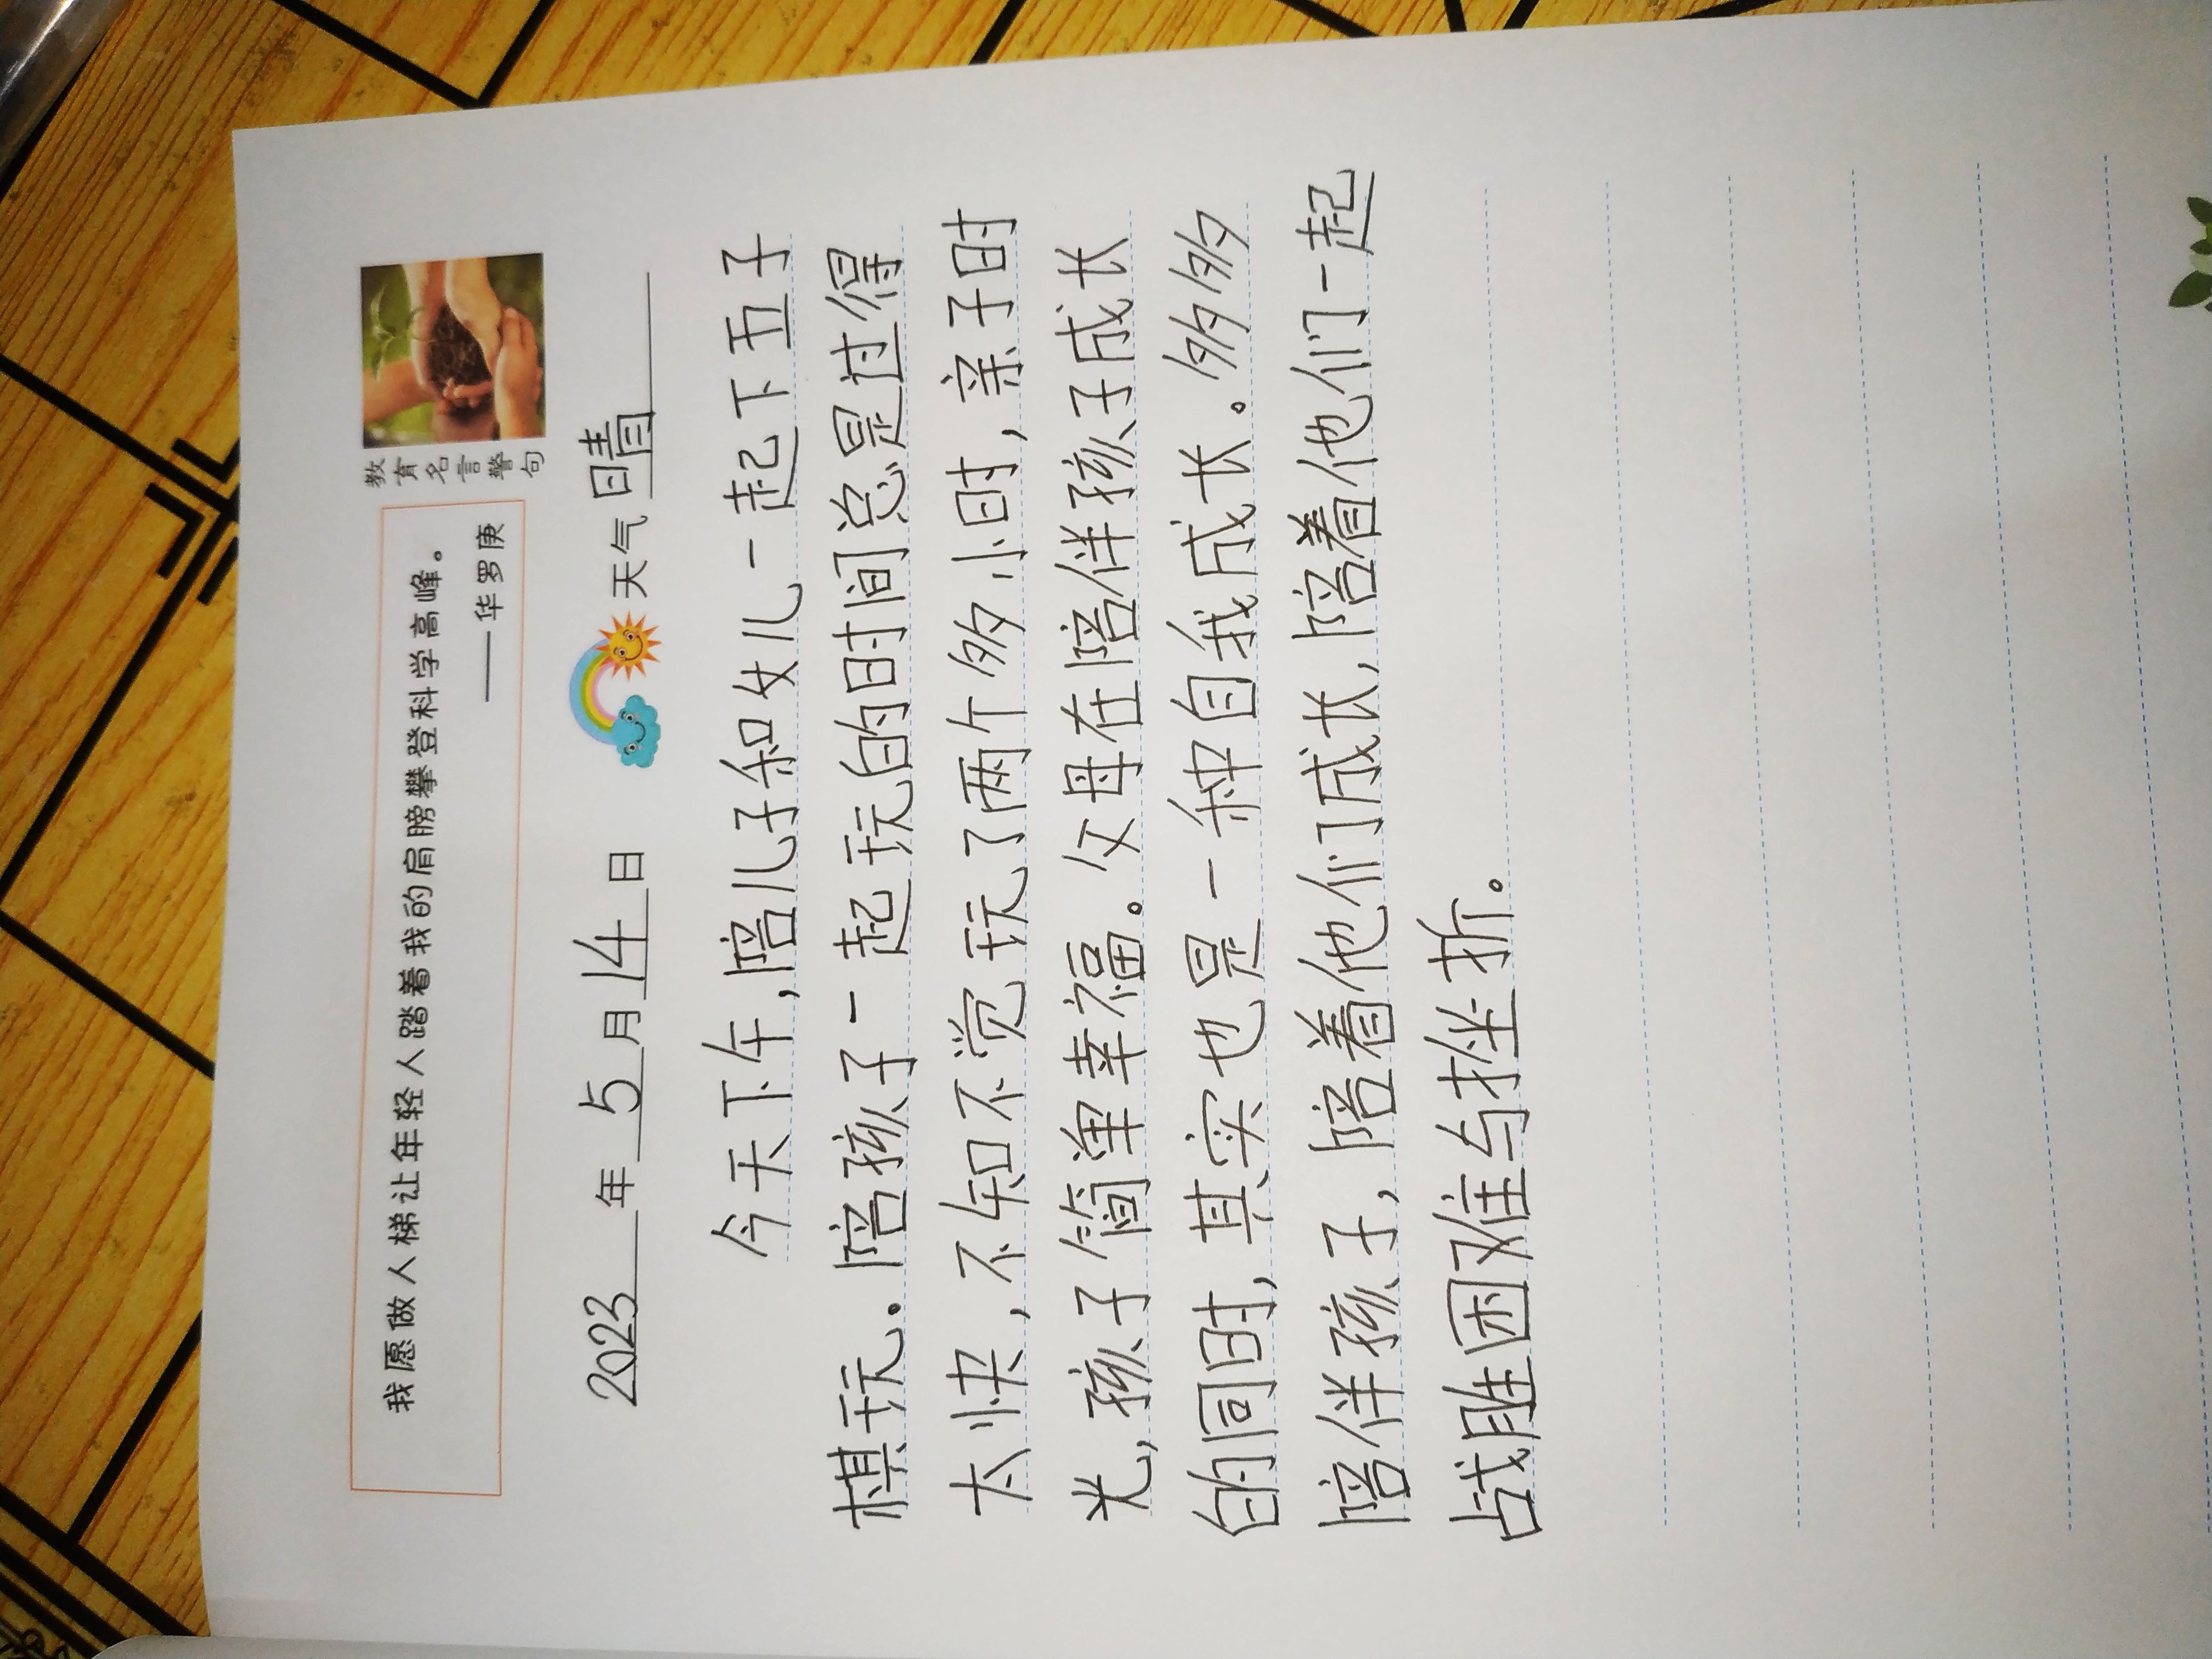 教育名言警句
我愿做人梯让年轻人踏着我的肩膀攀登科学高峰。
——华罗庚
2023年5月14日 天气晴
今天下午,陪儿子和女儿一起下五子
棋玩。陪孩子一起玩的时间总是过得
太快,不知不觉玩了两个多小时,亲子时
光,孩子简单幸福。父母在陪伴孩子成长
的同时,其实也是一种自我成长。多多
陪伴孩子,陪着他们成长,陪着他们一起
战胜困难与挫折。